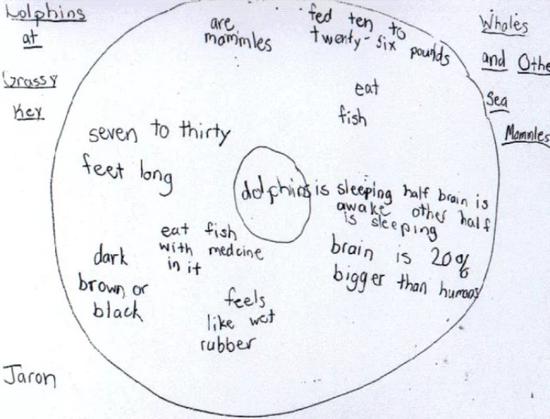 Dolphins
at
Grassy
Key
are
mammles
fed ten to
twenty-six pounds
Whales
and Othe
Sea
Mammles
eat
fish
seven to thirty
feet long
dolphins is sleeping half brain is
awake other half
is sleeping
brain is 20%
bigger than humans
eat fish
with medcine
in it
dark
brown or
black
feels
like wet
rubber
Jaron